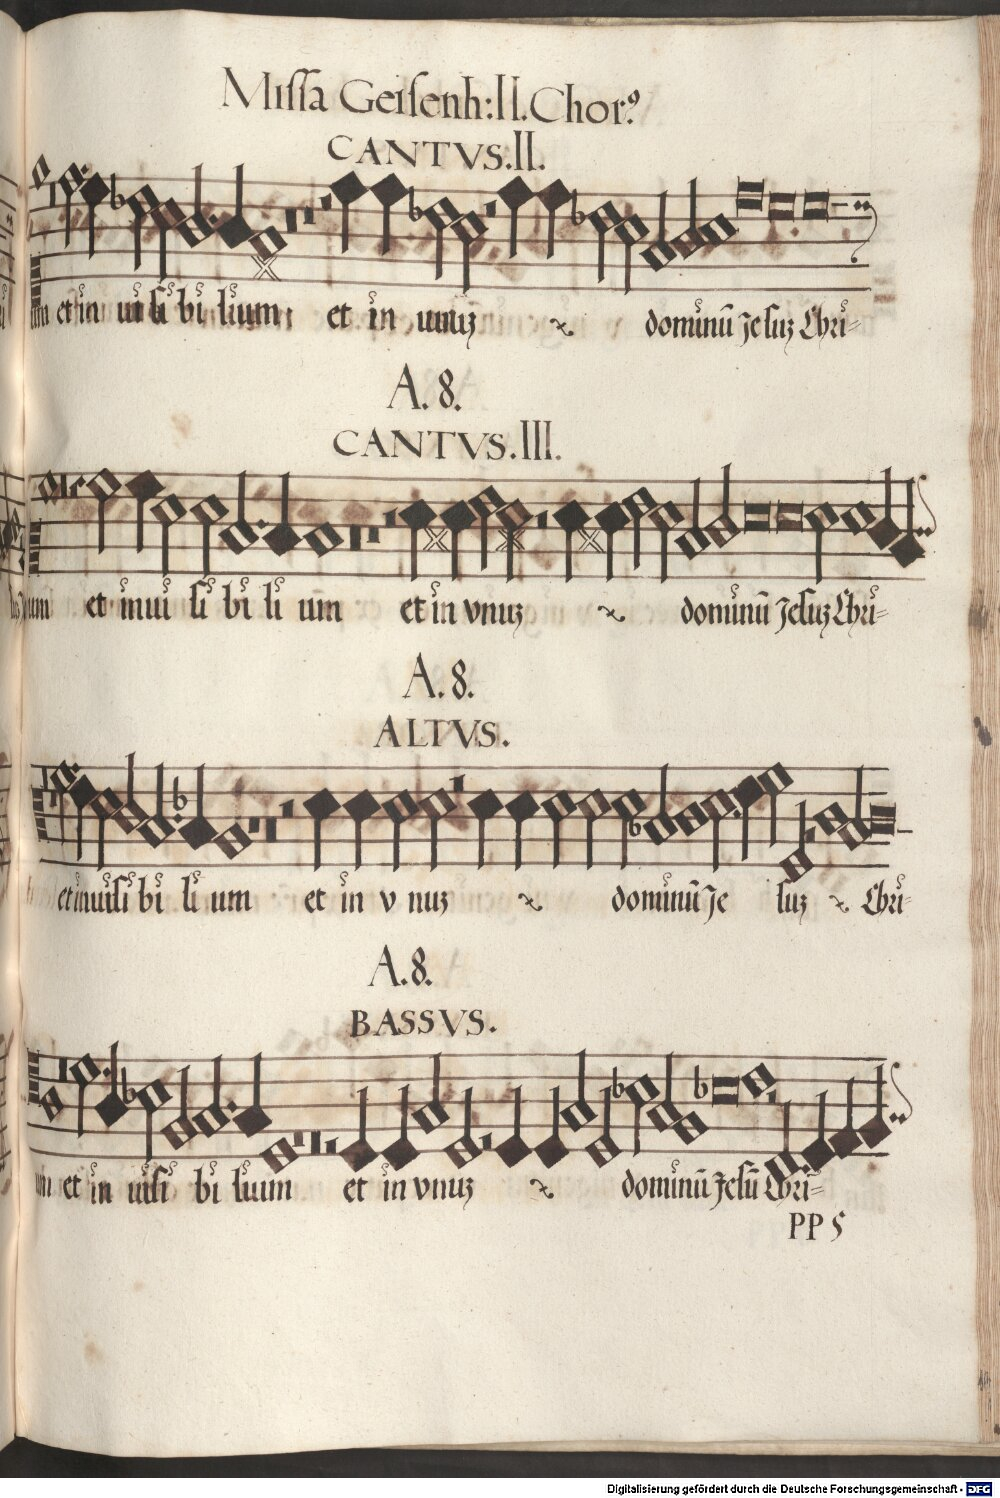 Missa Geisenh: II. Chor9
CANTVS. II.
um et in uisi bi lium et in unuʒ dominū Jesuʒ Chri=
A. 8.
CANTVS. III.
um et inui si bi li um et in vnuʒ dominū Jesuʒ Chri=
A. 8.
ALTVS.
et inuisi bi li um et in v nuʒ dominū Je suʒ Chri=
A. 8.
BASSVS.
um et in uisi bi lium et in vnuʒ dominū Jesū Chri=
PP 5
Digitalisierung gefördert durch die Deutsche Forschungsgemeinschaft - DFG